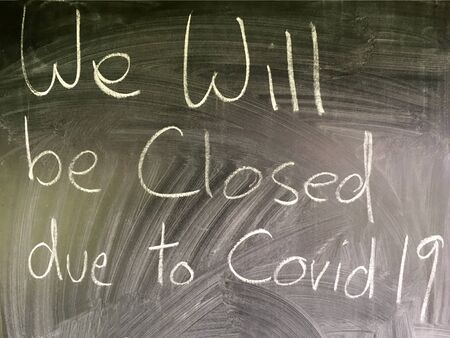 We Will
be Closed
due to Covid 19